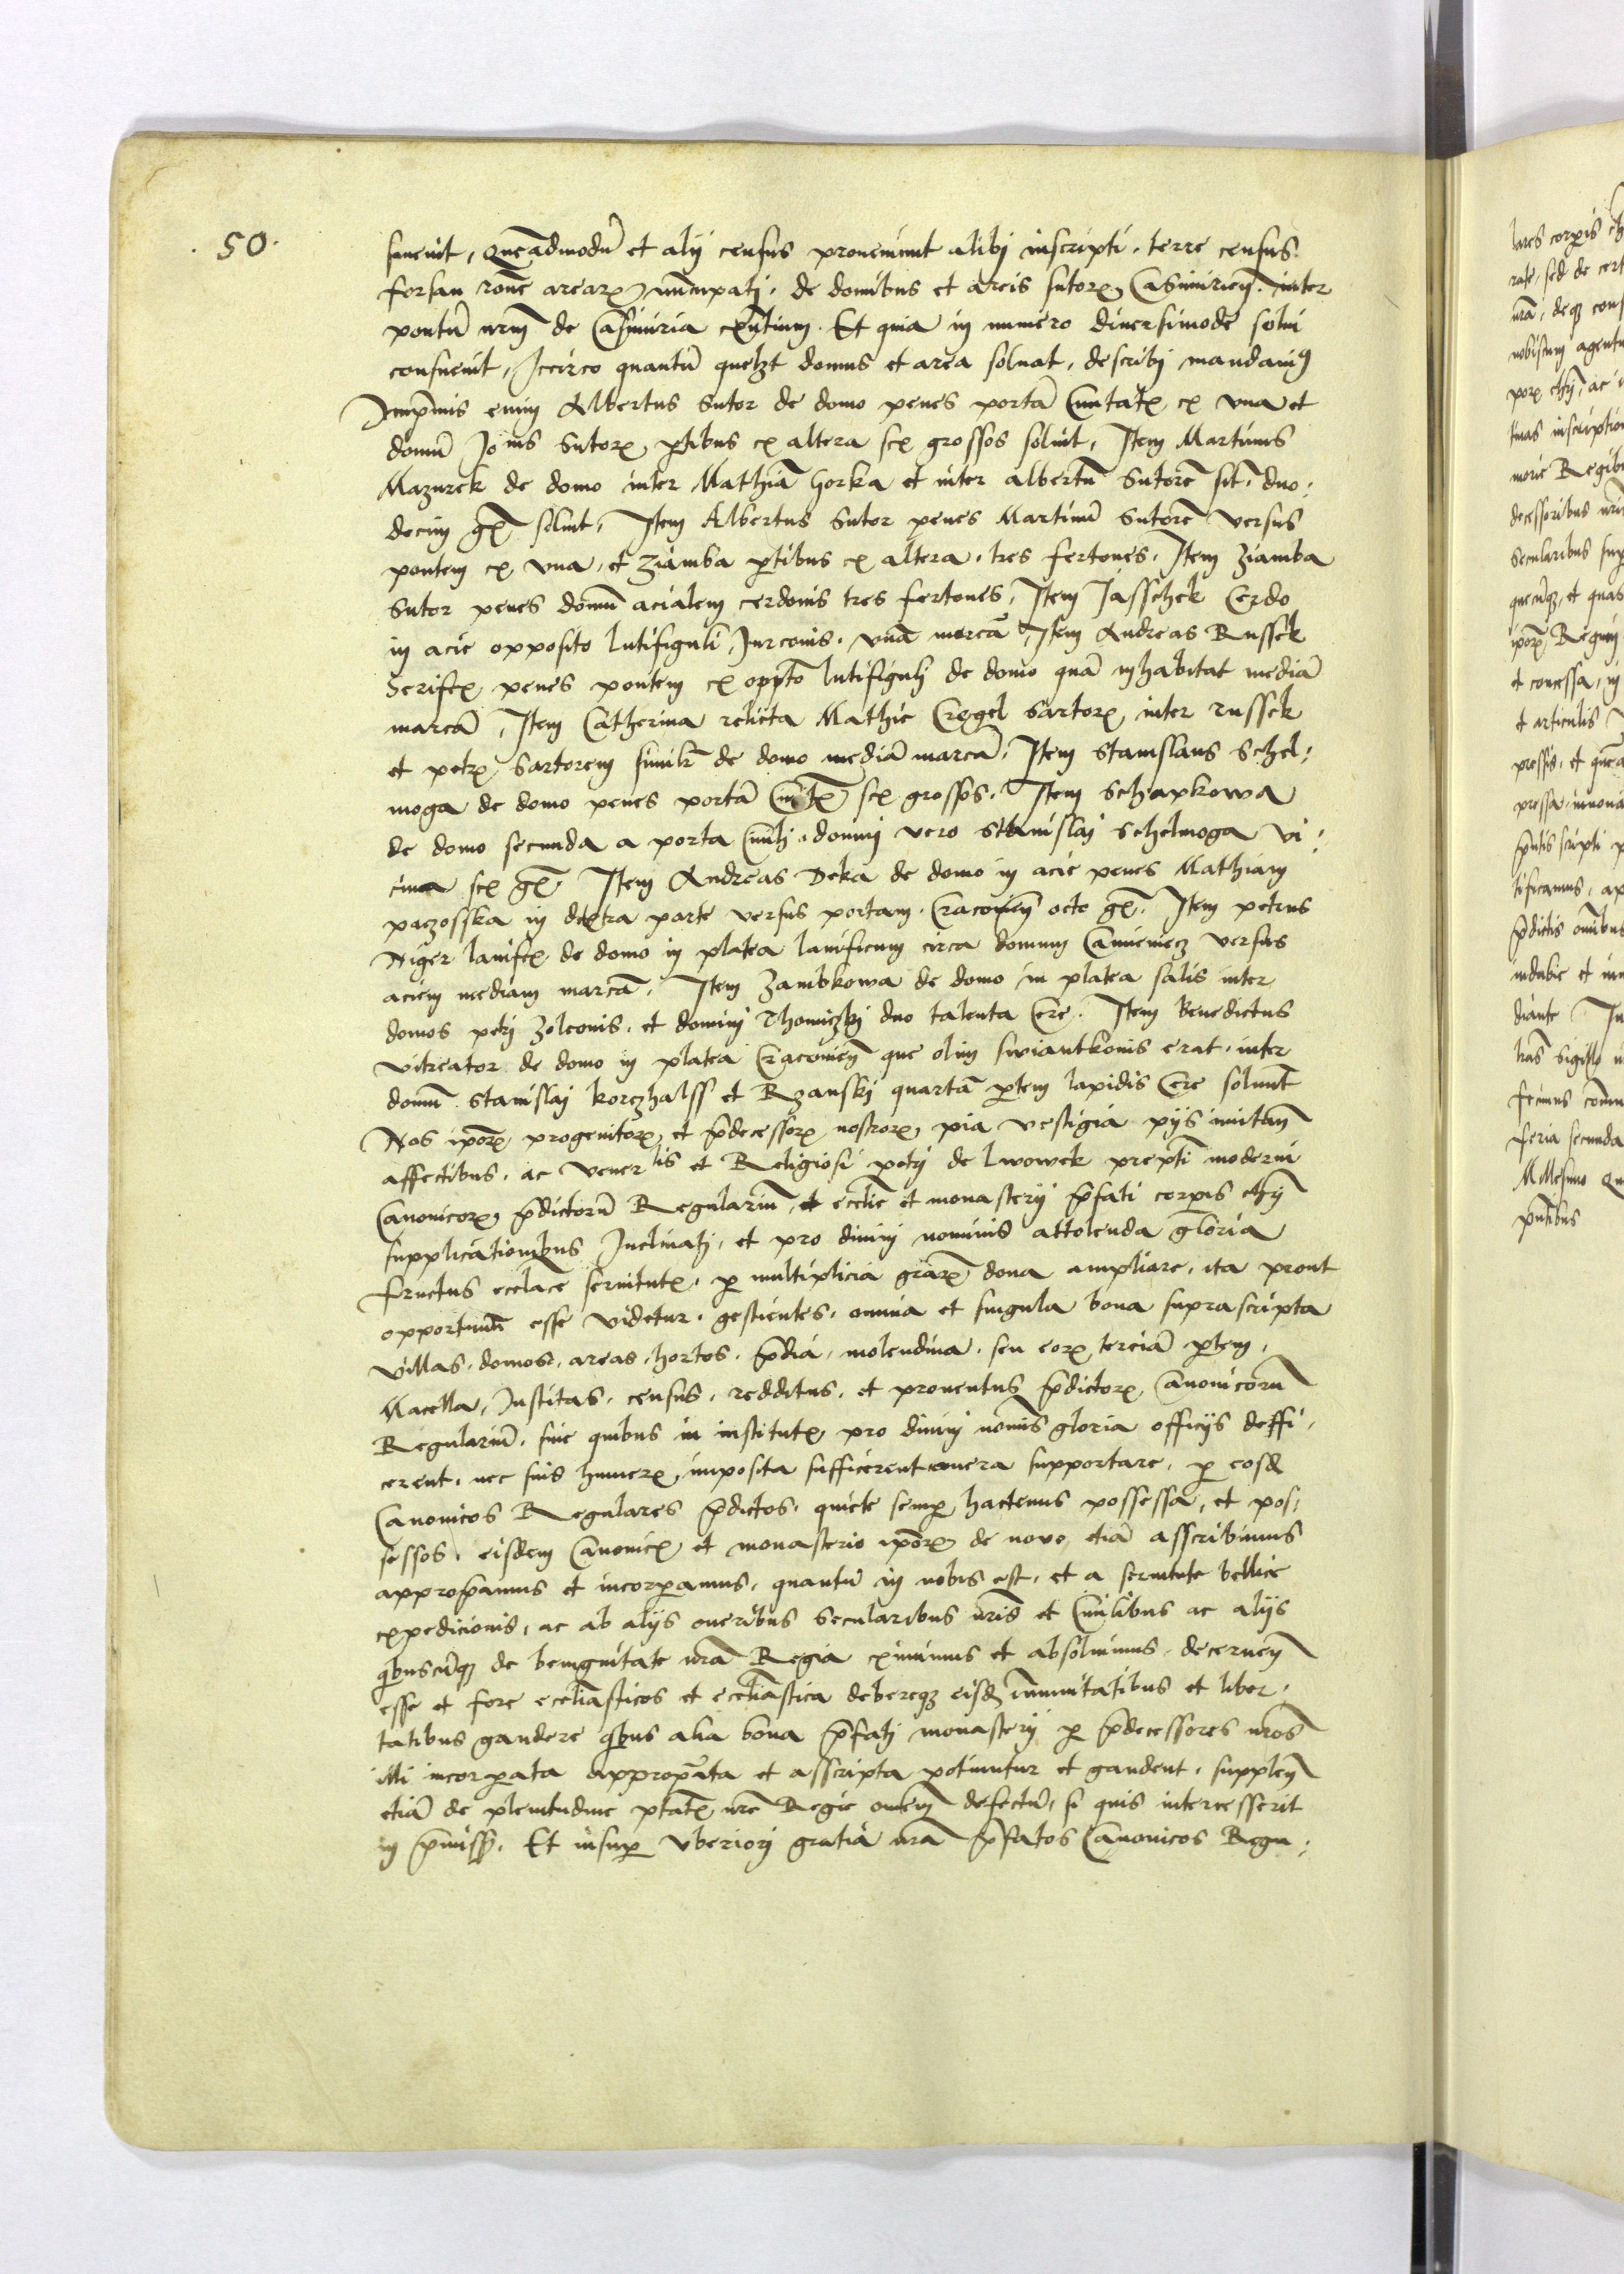 50
sueuit, Queadmodũ et alij census proueniunt alibj inscripti. terre census
forsan rone arearꝝ nucupatj. de domibus et areis sutorꝝ Casimirien. inter
pontũ nrm de Casimiria exntium. Et quia in numero diuersimode solui
consueuit, Iccirco quantũ quelzt domus et area soluat, describj mandauiꝰ
Inprimis enim Albertus Sutor de domo penes portã Ciuitatꝭ ex vna et
domũ Jo nis Sutorꝭ ptibus ex altera sex grossos soluit, Item Martinus
Mazurek de domo inter Mathiã Gorka et inter albertũ Sutorẽ sit. duo:
decim gꝭ soluit, Item Albertus Sutor penes Martinũ Sutorẽ versus
pontem ex vna, et ziamba ptibus ex altera. tres fertones. Item ziamba
Sutor penes domũ acialem cerdonis tres fertones, Item Jasschek Cerdo
in acie opposito lutifiguli Jurconis. vnã marcã, Item Andreas Russek
Serifex penes pontem ex oppto lutifigulj de domo quã inhabitat mediã
marcã, Item Catherina relicta Mathie Cregel Sartorꝭ inter russek
et petrꝭ Sartorem similr de domo mediã marcã. Item Stanislaus Schel:
moga de domo penes portã Ciutꝭ sex grossos. Item Schapkowa
de domo secunda a porta Ciuilj. domuj vero Stanislaj Schelmoga vi:
cina sex gꝭ Item Andreas Deka de domo in acie penes Mathiam
paczosska in dextra parte versus portam. Cracouien octo gꝭ. Item petrus
Niger lanifex de domo in platea lanificum circa domum Camieniecz versus
aciem mediam marcã. Item Zambkowa de domo in platea salis inter
domos petrj Zolconis. et dominj Thomiczkj duo talenta Cere. Item Benedictus
vitreator de domo in platea Cracouien que olim swiantkonis erat. inter
domũ Stanislaj korczhalss et Rzanskj quartã ptem lapidis Cere soluunt
Nos ipõrꝝ progenitorꝝ et p̃decessorꝝ nostrorꝝ, pia vestigia pijs imitan
affectibus. ac vener lis et Religiosi petrj de lwowek prepti moderni
Canonicorꝝ p̃dictorũ Regulariũ, et ecclie et monasterij p̃fati corpis chrj
supplicationibus Inclinatj, et pro diuinj nominis attolenda gloria
fructus ecclace seruitutꝭ. p multiplicia grarꝝ dona ampliare, ita prout
opportunũ esse videtur. gestientes. omnia et singula bona suprascripta
villas. domos. areas. hortos. p̃dia. molendina. seu eorꝝ terciã ptem,
Macella, Institas. census. redditus. et prouentus p̃dictorꝝ, Canonicorũ
Regulariũ. sine quibus in institutꝭ pro diuinj nominis gloria officijs deffi:
cerent. nec suis humerꝭ imposita sufficerent onera supportare. p eosd
Canonicos Regulares p̃dictos. quiete semp hactenus possessa, et pos:
sessos. eisdem Canonicꝭ et monasterio ipõrꝝ de nouo etiã asscribimus
appropiamus et incorporamus. quantũ in nobis est. et a seruitute bellice
expedicionis, ac ab alijs oneribus Secularibus nris et Ciuilibus ac alijs
qbuscũqꝫ de benignitate nrã Regia eximimus et absoluimus. decernen
esse et fore eccliasticos et eccliastica debereqꝫ eisd immunitatibus et liber:
tatibus gaudere qbus alia bona p̃fatj monasterij p p̃decessores nros
illi incorporata appropiata et asscripta potiuntur et gaudent. supplen
etiã de plenitudine ptatꝭ nre Regie omem defectũ, si quis intercesserit
in p̃miss. Et insup vberiorj gratia nrã p̃fatos Canonicos Regu: